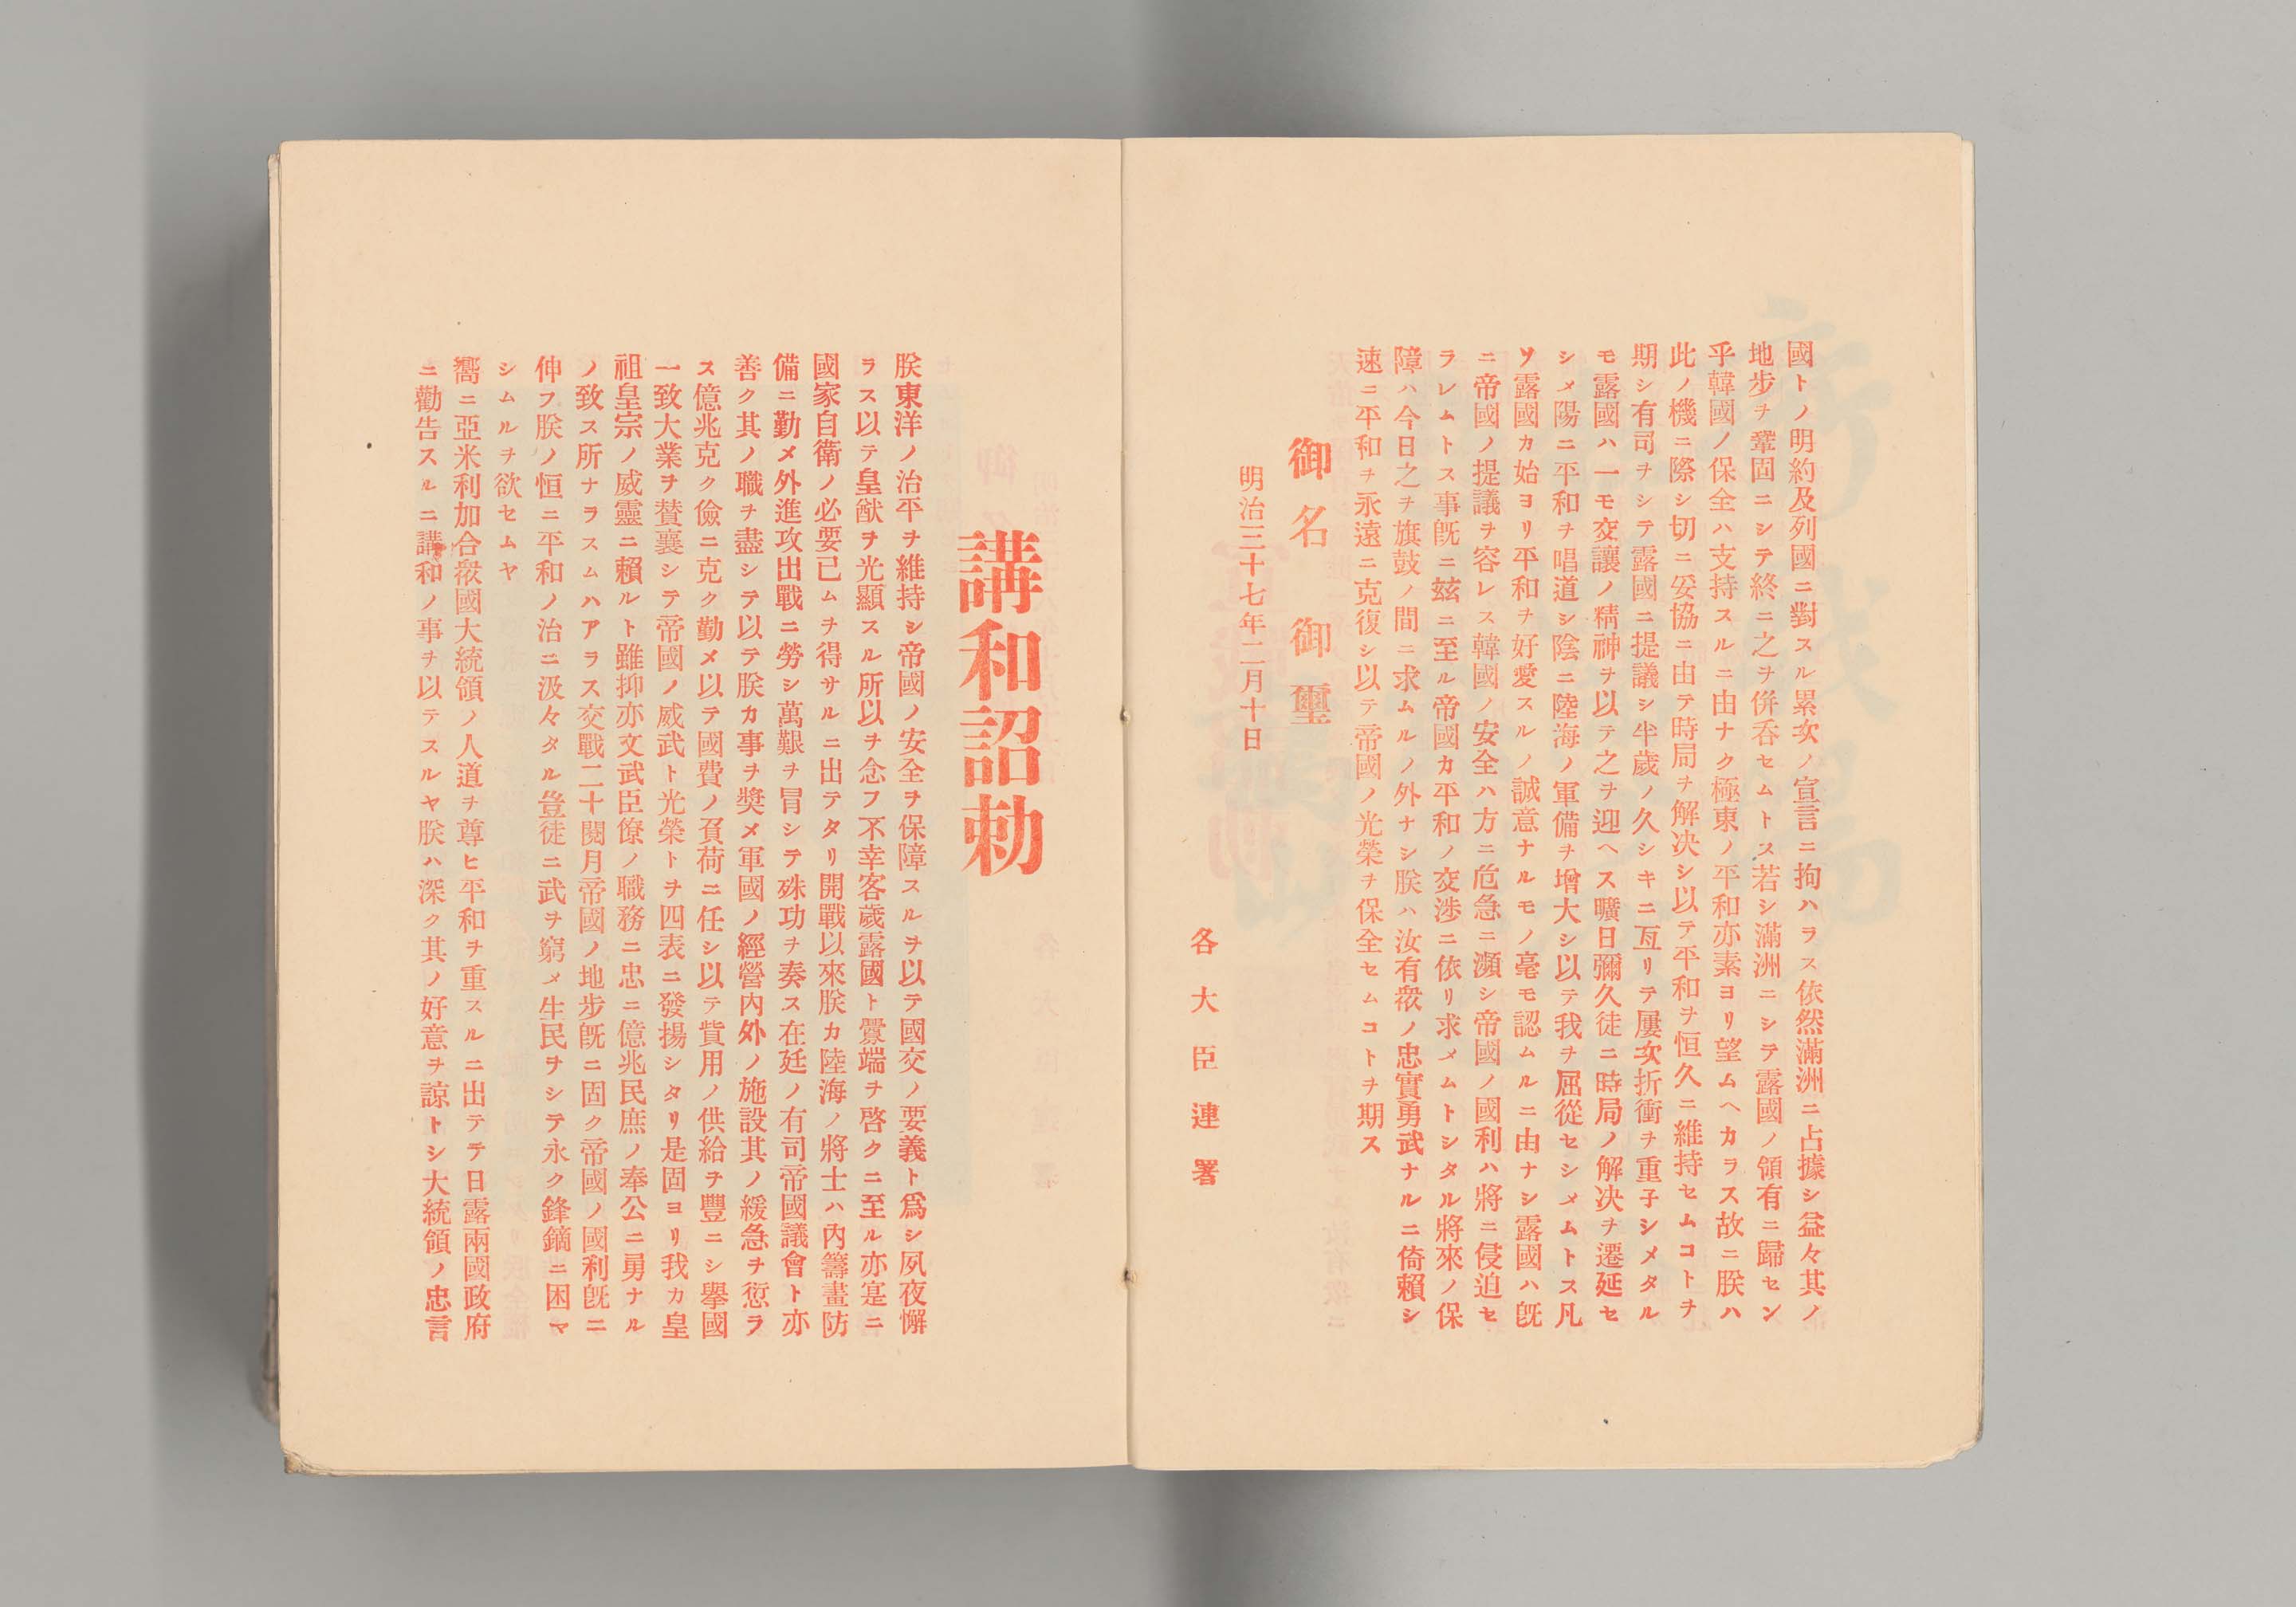 國トノ明約及列國ニ對スル累次ノ宣言ニ拘ハラス依然滿洲ニ占據シ益々其ノ
地步ヲ鞏固ニシテ終ニ之ヲ併呑セムトス若シ滿洲ニシテ露國ノ領有ニ歸セン
乎韓國ノ保全ハ支持スルニ由ナク極東ノ平和亦素ヨリ望ムヘカラス故ニ朕ハ
此ノ機ニ際シ切ニ妥協ニ由テ時局ヲ解决シ以テ平和ヲ恒久ニ維持セムコトヲ
期シ有司ヲシテ露國ニ提議シ半歲ノ久シキニ亙リテ屢次折衝ヲ重子シメタル
モ露國ハ一モ交讓ノ精神ヲ以テ之ヲ迎ヘス曠日彌久徒ニ時局ノ解决ヲ遷延セ
シメ陽ニ平和ヲ唱道シ陰ニ陸海ノ軍備ヲ增大シ以テ我ヲ屈從セシメムトス凡
ソ露國カ始ヨリ平和ヲ好愛スルノ誠意ナルモノ毫モ認ムルニ由ナシ露國ハ旣
ニ帝國ノ提議ヲ容レス韓國ノ安全ハ方ニ危急ニ瀕シ帝國ノ國利ハ將ニ侵迫セ
ラレムトス事旣ニ玆ニ至ル帝國カ平和ノ交涉ニ依リ求メムトシタル將來ノ保
障ハ今日之ヲ旗鼓ノ間ニ求ムルノ外ナシ朕ハ汝有衆ノ忠實勇武ナルニ倚賴シ
速ニ平和ヲ永遠ニ克復シ以テ帝國ノ光榮ヲ保全セムコトヲ期ス
御名御璽
明治三十七年二月十日
各大臣連署
講和詔勅
朕東洋ノ治平ヲ維持シ帝國ノ安全ヲ保障スルヲ以テ國交ノ要義ト爲シ夙夜懈
ラス以テ皇猷ヲ光顯スル所以ヲ念フ不幸客歲露國ト釁端ヲ啓クニ至ル亦寔ニ
國家自衞ノ必要已ムヲ得サルニ出テタリ開戰以來朕カ陸海ノ將士ハ內籌畫防
備ニ勤メ外進攻出戰ニ勞シ萬艱ヲ冐シテ殊功ヲ奏ス在廷ノ有司帝國議會ト亦
善ク其ノ職ヲ盡シテ以テ朕カ事ヲ奬メ軍國ノ經營內外ノ施設其ノ緩急ヲ愆ラ
ス億兆克ク儉ニ克ク勤メ以テ國費ノ負荷ニ任シ以テ貲用ノ供給ヲ豐ニシ擧國
一致大業ヲ賛襄シテ帝國ノ威武ト光榮トヲ四表ニ發揚シタリ是固ヨリ我カ皇
祖皇宗ノ威靈ニ賴ルト雖抑亦文武臣僚ノ職務ニ忠ニ億兆民庶ノ奉公ニ勇ナル
ノ致ス所ナラスムハアラス交戰二十閱月帝國ノ地步旣ニ固ク帝國ノ國利旣ニ
伸フ朕ノ恒ニ平和ノ治ニ汲々タル豈徒ニ武ヲ窮メ生民ヲシテ永ク鋒鏑ニ困マ
シムルヲ欲セムヤ
嚮ニ亞米利加合衆國大統領ノ人道ヲ尊ヒ平和ヲ重スルニ出テテ日露兩國政府
ニ勸告スルニ講和ノ事ヲ以テスルヤ朕ハ深ク其ノ好意ヲ諒トシ大統領ノ忠言